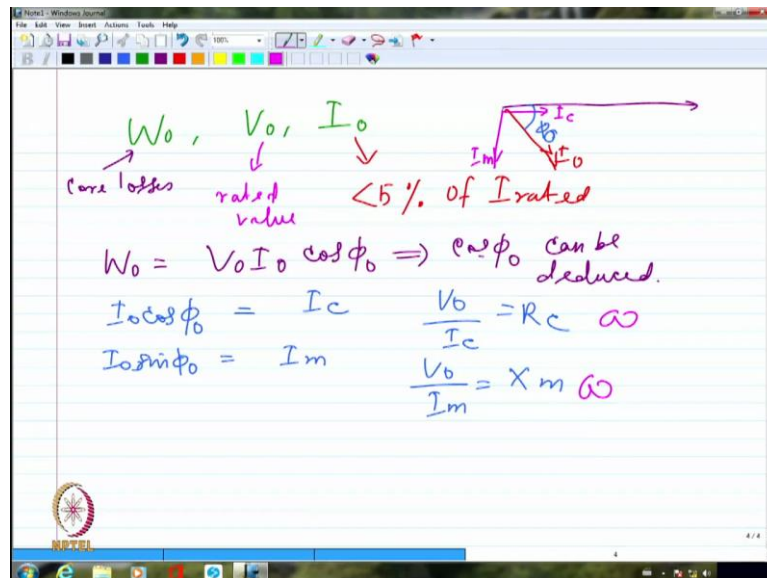 Note1 - Windows Journal
File Edit View Insert Actions Tools Help
100%
B I
W₀ , V₀, I₀
core losses
rated value
<5 % of I rated
Ic
φ₀
Im
I₀
W₀ = V₀ I₀ cos φ₀ ⇒ cos φ₀ can be deduced.
I₀ cos φ₀ = Ic
V₀ / Ic = Rc ∞
I₀ sin φ₀ = Im
V₀ / Im = X m ∞
NPTEL
4 / 4
4